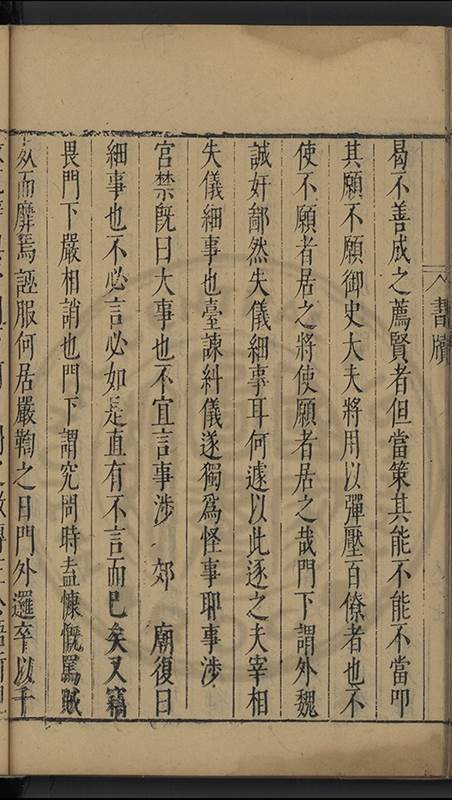 書牘
曷不善成之薦賢者但當策其能不能不當叩
其願不願御史大夫將用以彈壓百僚者也不
使不願者居之將使願者居之哉門下謂外魏
誠奸鄙然失儀細事耳何遽以此逐之夫宰相
失儀細事也臺諫糾儀遂獨爲怪事耶事涉
宮禁旣曰大事也不宜言事涉 郊 廟復曰
細事也不必言必如是直有不言而已矣又竊
畏門下嚴相誚也門下謂究問時盍慷慨罵賊
從而靡焉誣服何居嚴鞫之日門外邏卒以千